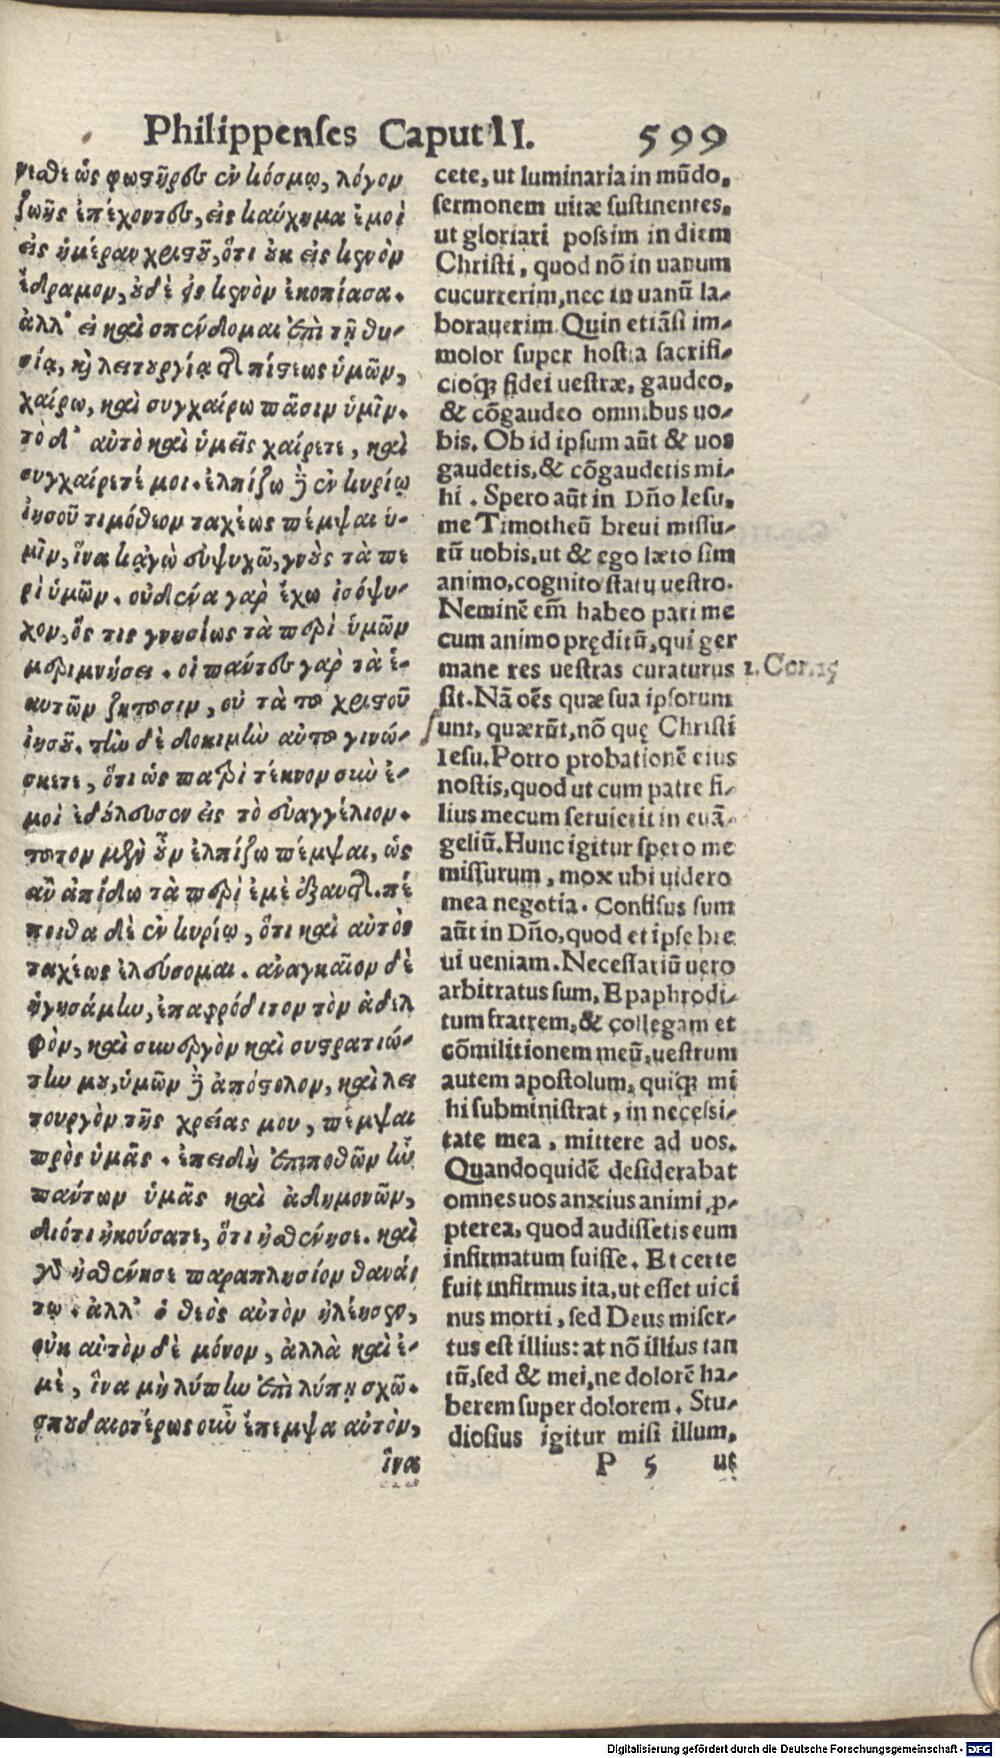 Philippenses Caput II. 599
νεσθε ὡς φωστῆρες ἐν κόσμῳ, λόγον
ζωῆς ἐπέχοντες, εἰς καύχημα ἐμοὶ
εἰς ἡμέραν χριστοῦ, ὅτι οὐκ εἰς κενὸν
ἔδραμον, οὐδὲ εἰς κενὸν ἐκοπίασα.
ἀλλ' εἰ καὶ σπένδομαι ἐπὶ τῇ θυ-
σίᾳ, καὶ λειτουργίᾳ τῆς πίστεως ὑμῶν,
χαίρω, καὶ συγχαίρω πᾶσιν ὑμῖν.
τὸ δ' αὐτὸ καὶ ὑμεῖς χαίρετε, καὶ
συγχαίρετέ μοι. ἐλπίζω δὲ ἐν κυρίῳ
ἰησοῦ τιμόθεον ταχέως πέμψαι ὑ-
μῖν, ἵνα κᾀγὼ εὐψυχῶ, γνοὺς τὰ πε
ρὶ ὑμῶν. οὐδένα γὰρ ἔχω ἰσόψυ-
χον, ὅς τις γνησίως τὰ περὶ ὑμῶν
μεριμνήσει. οἱ πάντες γὰρ τὰ ἑ-
αυτῶν ζητοῦσιν, οὐ τὰ τοῦ χριστοῦ
ἰησοῦ. τὴν δὲ δοκιμὴν αὐτοῦ γινώ-
σκετε, ὅτι ὡς πατρὶ τέκνον σὺν ἐ-
μοὶ ἐδούλευσεν εἰς τὸ εὐαγγέλιον.
τοῦτον μὲν οὖν ἐλπίζω πέμψαι, ὡς
ἂν ἀπίδω τὰ περὶ ἐμὲ ἐξαυτῆς. πέ
ποιθα δὲ ἐν κυρίῳ, ὅτι καὶ αὐτὸς
ταχέως ἐλεύσομαι. ἀναγκαῖον δὲ
ἡγησάμην, ἐπαφρόδιτον τὸν ἀδελ
φὸν, καὶ συνεργὸν καὶ συστρατιώ-
την μου, ὑμῶν δὲ ἀπόστολον, καὶ λει
τουργὸν τῆς χρείας μου, πέμψαι
πρὸς ὑμᾶς. ἐπειδὴ ἐπιποθῶν ἦν
πάντων ὑμᾶς καὶ ἀδημονῶν,
διότι ἠκούσατε, ὅτι ἠσθένησε. καὶ
γὰρ ἠσθένησε παραπλησίον θανά
τῳ. ἀλλ' ὁ θεὸς αὐτὸν ἠλέησεν,
οὐκ αὐτὸν δὲ μόνον, ἀλλὰ καὶ ἐ-
μὲ, ἵνα μὴ λύπην ἐπὶ λύπῃ σχῶ.
σπουδαιοτέρως οὖν ἔπεμψα αὐτὸν,
ἵνα
cete, ut luminaria in mūdo,
sermonem uitæ sustinentes,
ut gloriari possim in diem
Christi, quod nō in uanum
cucurrerim, nec in uanū la-
borauerim. Quin etiāsi im-
molor super hostia sacrifi-
cioq́; fidei uestræ, gaudeo,
& cōgaudeo omnibus uo-
bis. Ob id ipsum aūt & uos
gaudetis, & cōgaudetis mi-
hi. Spero aūt in Dño Iesu,
me Timotheū breui missu-
rū uobis, ut & ego læto sim
animo, cognito statu uestro.
Neminē em̄ habeo pari me
cum animo pręditū, qui ger
mane res uestras curaturus 1. Cor. 15
sit. Nā oēs quæ sua ipsorum
sunt, quærūt, nō quę Christi
Iesu. Porro probationē eius
nostis, quod ut cum patre fi-
lius mecum seruierit in euā-
geliū. Hunc igitur spero me
missurum, mox ubi uidero
mea negotia. Confisus sum
aūt in Dño, quod et ipse bre
ui ueniam. Necessariū uero
arbitratus sum, Epaphrodi-
tum fratrem, & collegam et
cōmilitionem meū, uestrum
autem apostolum, quiq́; mi
hi subministrat, in necessi-
tate mea, mittere ad uos.
Quandoquidē desiderabat
omnes uos anxius animi ꝓ-
pterea, quod audissetis eum
infirmatum fuisse. Et certe
fuit infirmus ita, ut esset uici
nus morti, sed Deus miser-
tus est illius: at nō illius tan
tū, sed & mei, ne dolorē ha-
berem super dolorem. Stu-
diosius igitur misi illum,
P 5 ut
Digitalisierung gefördert durch die Deutsche Forschungsgemeinschaft - DFG